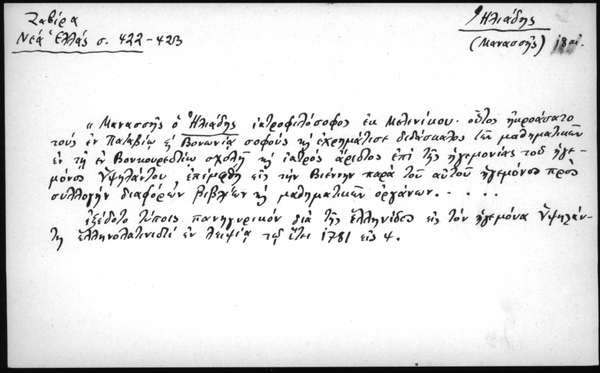 Ζαβίρα
Νεά Ἑλλάς σ. 422-423
Ἠλιάδης
(Μανασσῆς)
« Μανασσῆς ὁ Ἠλιάδης ἰατροφιλόσοφος ἐκ Μελενίκου. οὗτος ἠκροάσατο
τοὺς ἐν Παταβίῳ ἐν Βονωνίᾳ σοφοὺς κῃ ἐχρημάτισε διδάσκαλος τῶν μαθηματικῶν
ἐν τῇ ἐν Βουκουρεστίῳ σχολῇ κῃ ἰατρὸς ἄριστος ἐπὶ τῆς ἡγεμονίας τοῦ ἡγε-
μόνος Ὑψηλάντου ἐπέμφθη εἰς τὴν Βιέννην παρὰ τοῦ αὐτοῦ ἡγεμόνος πρὸς
συλλογὴν διαφόρων βιβλίων κῃ μαθηματικῶν ὀργάνων. . . . .
ἐξέδοτο τύποις πανηγυρικόν διὰ τῆς Ἑλληνίδος εἰς τὸν ἡγεμόνα Ὑψηλάν-
τη ἑλληνολατινιστί ἐν Λειψίᾳ τῷ ἔτει 1781 εἰς 4.